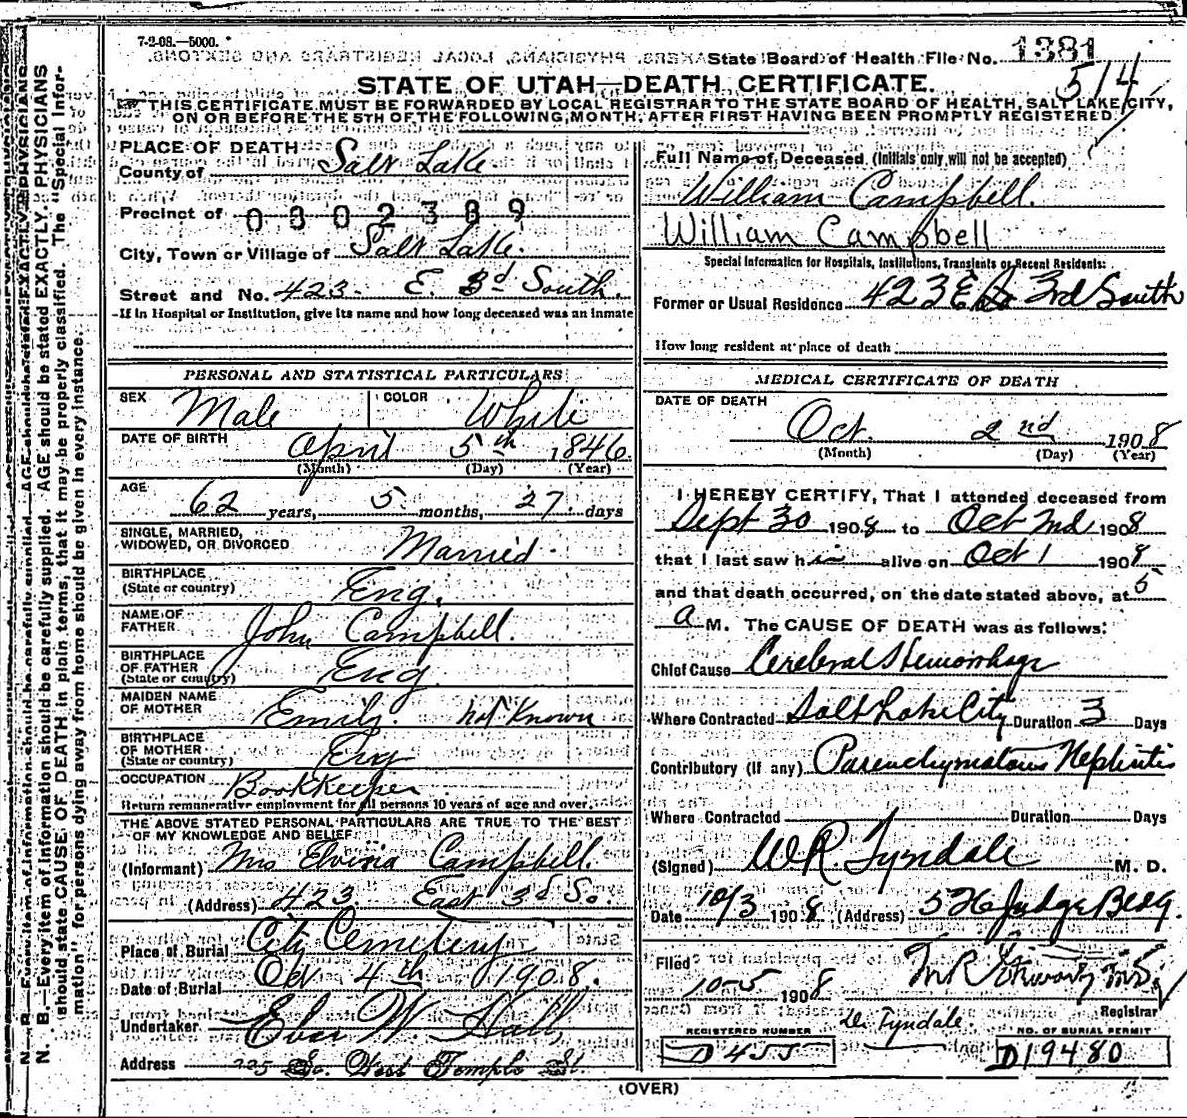 7-2-08.—5000.
State Board of Health File No. 1381
514
STATE OF UTAH—DEATH CERTIFICATE.
THIS CERTIFICATE MUST BE FORWARDED BY LOCAL REGISTRAR TO THE STATE BOARD OF HEALTH, SALT LAKE CITY,
ON OR BEFORE THE 5TH OF THE FOLLOWING MONTH, AFTER FIRST HAVING BEEN PROMPTLY REGISTERED.
PLACE OF DEATH
County of Salt Lake
Precinct of 0002389
City, Town or Village of Salt Lake.
Street and No. 423 E. 3d South.
If in Hospital or Institution, give its name and how long deceased was an inmate
PERSONAL AND STATISTICAL PARTICULARS
SEX Male COLOR White
DATE OF BIRTH April 5th 1846
(Month) (Day) (Year)
AGE
62 years, 5 months, 27 days
SINGLE, MARRIED,
WIDOWED, OR DIVORCED Married.
BIRTHPLACE
(State or country) Eng.
NAME OF
FATHER John Campbell.
BIRTHPLACE
OF FATHER
(State or country) Eng
MAIDEN NAME
OF MOTHER Emily. not Known
BIRTHPLACE
OF MOTHER
(State or country) Eng
OCCUPATION BookKeeper
Return remunerative employment for all persons 10 years of age and over.
THE ABOVE STATED PERSONAL PARTICULARS ARE TRUE TO THE BEST
OF MY KNOWLEDGE AND BELIEF
(Informant) Mrs Elvira Campbell.
(Address) 423 East 3d So.
Place of Burial City Cemetery
Date of Burial Oct 4th 1908.
Undertaker Eber W. Hall
Address So. West Temple St.
Full Name of Deceased (Initials only will not be accepted)
William Campbell.
William Campbell
Special Information for Hospitals, Institutions, Transients or Recent Residents:
Former or Usual Residence 423 E 3rd South
How long resident at place of death
MEDICAL CERTIFICATE OF DEATH
DATE OF DEATH
Oct. 2nd 1908
(Month) (Day) (Year)
I HEREBY CERTIFY, That I attended deceased from
Sept 30 1908 to Oct 2nd 1908
that I last saw him alive on Oct 1 1908
and that death occurred, on the date stated above, at 5
a M. The CAUSE OF DEATH was as follows:
Chief Cause Cerebral Hemorrhage
Where Contracted Salt Lake City Duration 3 Days
Contributory (if any) Parenchymatous Nephritis
Where Contracted Duration Days
(Signed) W R. Tyndale M. D.
Date 10/3 1908 (Address) 526 Judge Bldg.
Filed
10-5 1908
Registrar
Dr. Tyndale.
REGISTERED NUMBER
D455
NO. OF BURIAL PERMIT
D19480
(OVER)
N. B.—Every item of information should be carefully supplied. AGE should be stated EXACTLY. PHYSICIANS
should state CAUSE OF DEATH in plain terms, that it may be properly classified. The "Special Infor-
mation" for persons dying away from home should be given in every instance.